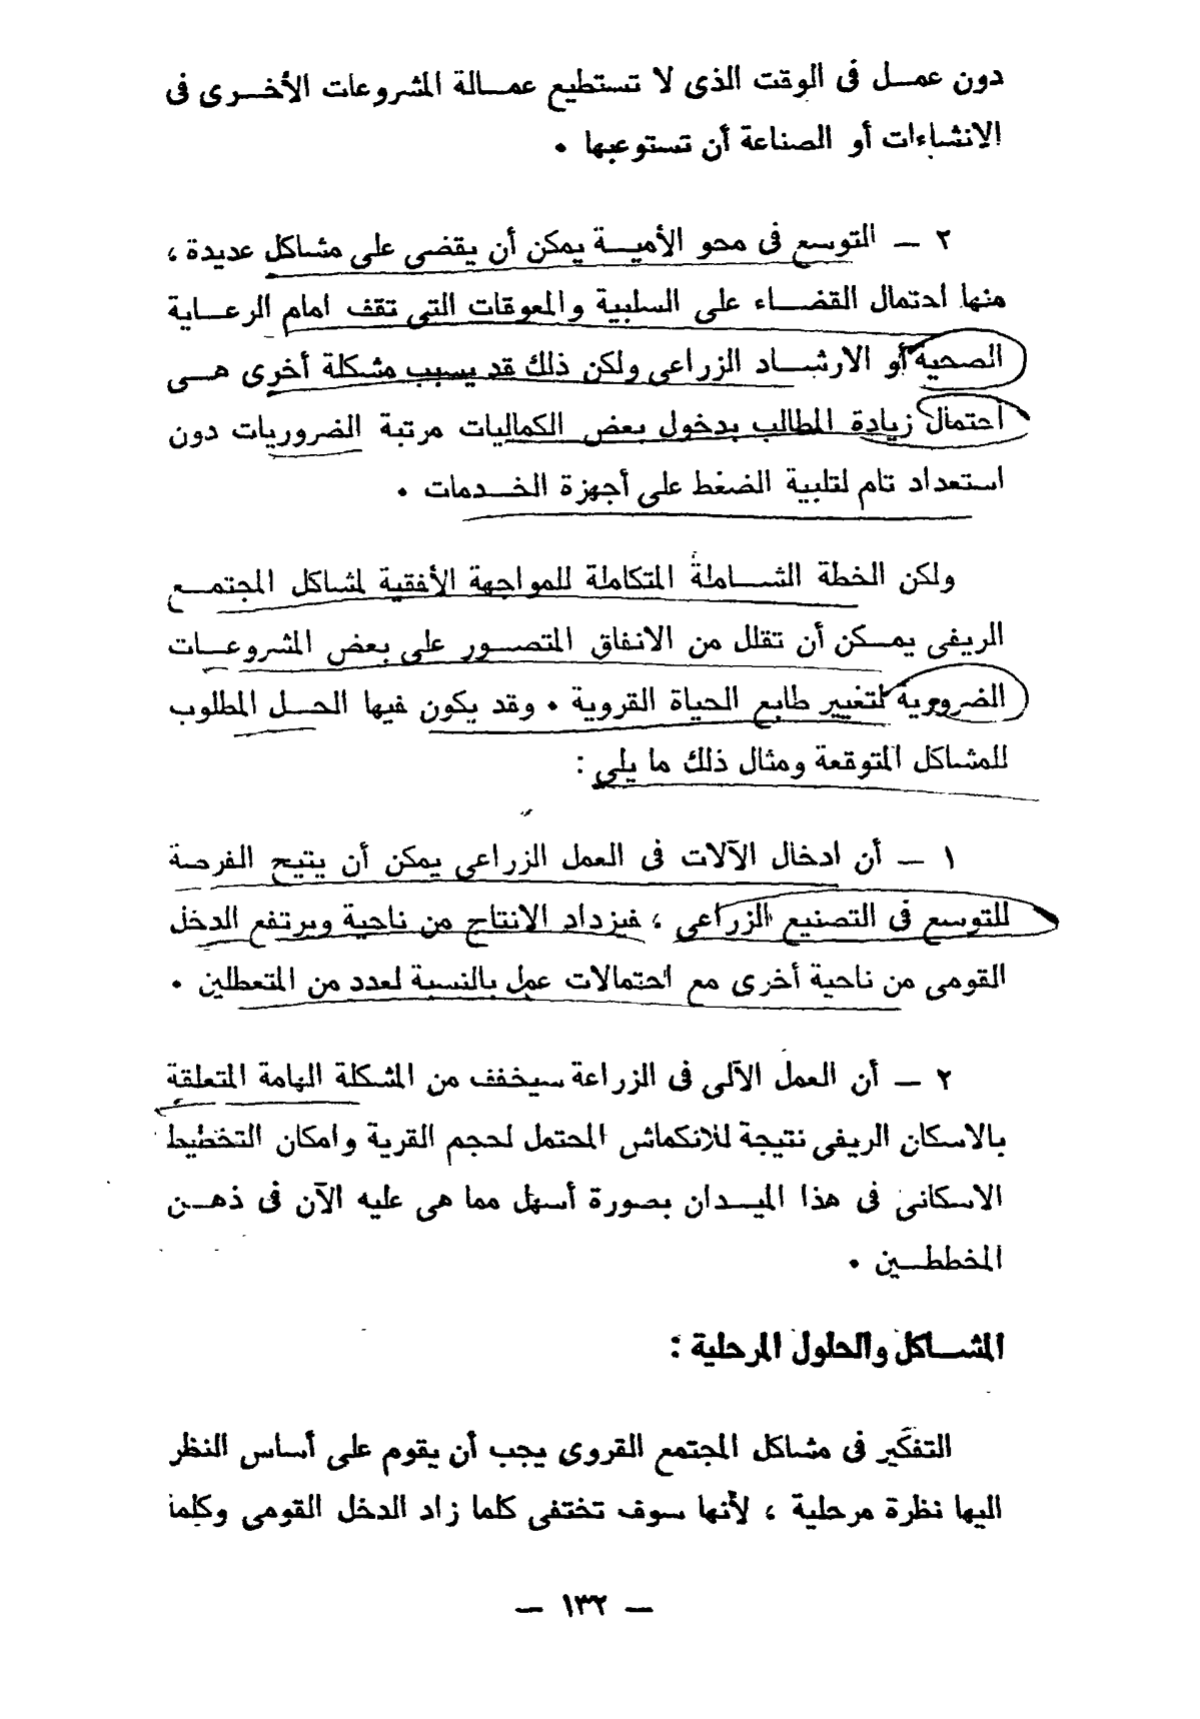 دون عمـل فى الوقت الذى لا تستطيع عمـالة المشروعات الأخـرى فى
الانشاءات أو الصناعة أن تستوعبها ٠
٢ ــ التوسع فى محو الأميـة يمكن أن يقضى على مشاكل عديدة ،
منها احتمال القضـاء على السلبية والمعوقات التى تقف امام الرعـاية
الصحية أو الارشـاد الزراعى ولكن ذلك قد يسبب مشكلة أخرى هـى
احتمال زيادة المطالب بدخول بعض الكماليات مرتبة الضروريات دون
استعداد تام لتلبية الضغط على أجهزة الخـدمات ٠
ولكن الخطة الشـاملة المتكاملة للمواجهة الأفقية لمشاكل المجتمـع
الريفى يمـكن أن تقلل من الانفاق المتصـور على بعض المشروعـات
الضرورية لتغيير طابع الحياة القروية ٠ وقد يكون فيها الحـل المطلوب
للمشاكل المتوقعة ومثال ذلك ما يلى :
١ ــ أن ادخال الآلات فى العمل الزراعى يمكن أن يتيح الفرصة
للتوسع فى التصنيع الزراعى ، فيزداد الانتاج من ناحية ويرتفع الدخل
القومى من ناحية أخرى مع احتمالات عمل بالنسبة لعدد من المتعطلين ٠
٢ ــ أن العمل الآلى فى الزراعة سيخفف من المشكلة الهامة المتعلقة
بالاسكان الريفى نتيجة للانكماش المحتمل لحجم القرية وامكان التخطيط
الاسكانى فى هذا الميـدان بصورة أسهل مما هى عليه الآن فى ذهـن
المخططـين ٠
المشـاكل والحلول المرحلية :
التفكير فى مشاكل المجتمع القروى يجب أن يقوم على أساس النظر
اليها نظرة مرحلية ، لأنها سوف تختفى كلما زاد الدخل القومى وكلما
ــ ١٣٢ ــ